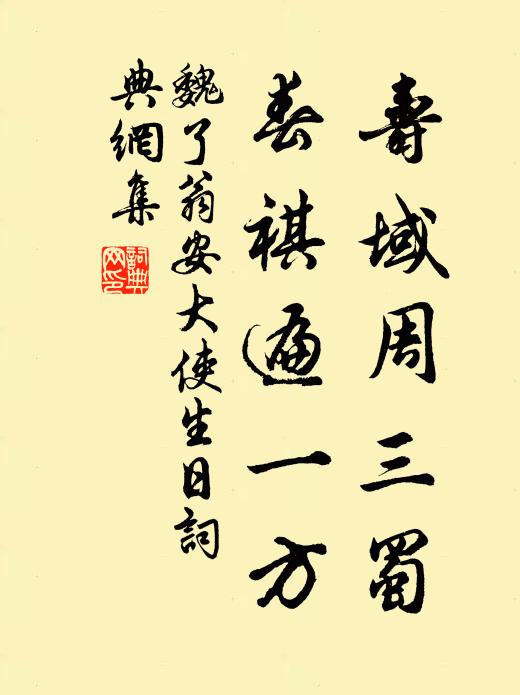 壽域周三蜀
春祺遍一方
魏了翁安大使生日詞
典網集
詞典網印